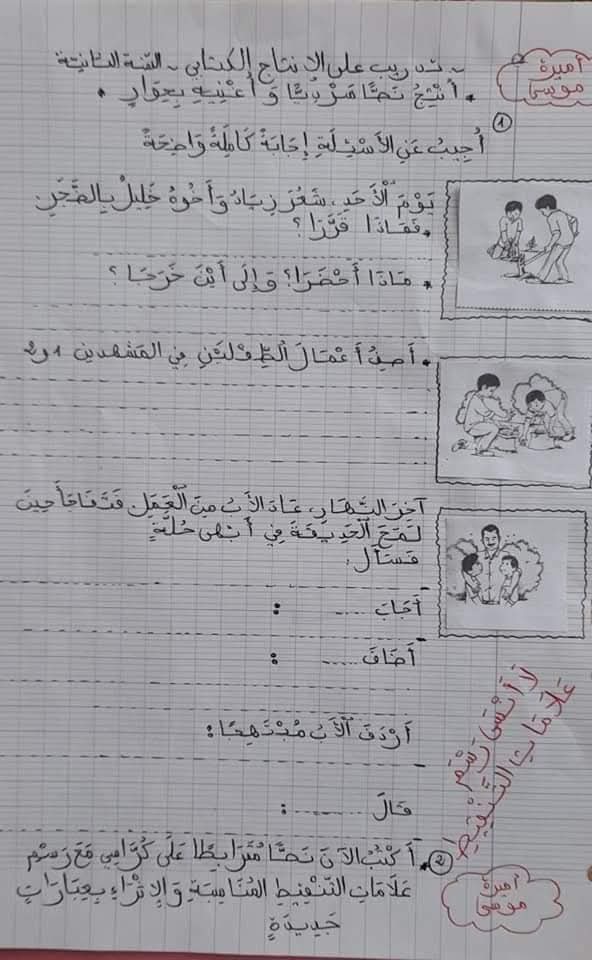 أميرة
موسى
~ تدريب على الإنتاج الكتابي ~ السّنة الثّانية
• أُنْتِجُ نَصًّا سَرْدِيًّا وَ أُغْنِيهِ بِحِوَارٍ •
① أُجِيبُ عَنِ الأَسْئِلَةِ إِجَابَةً كَامِلَةً وَاضِحَةً
يَوْمَ الْأَحَدِ، شَعُرَ زِيَادُ وَ أَخُوهُ خَلِيلٌ بِالضَّجَرِ
• فَمَاذَا قَرَّرَا ؟
• مَاذَا أَحْضَرَا؟ وَ إِلَى أَيْنَ خَرَجَا ؟
• أَصِفُ أَعْمَالَ الطِّفْلَيْنِ فِي المَشْهَدَيْنِ 1 و2
آخِرَ النَّهَارِ، عَادَ الأَبُ مِنَ الْعَمَلِ فَتَفَاجَأَ حِينَ
لَمَحَ الْحَدِيقَةَ فِي أَبْهَى حُلَّةٍ
فَسَأَلَ:
أَجَابَ ..... :
أَضَافَ ..... :
أَرْدَفَ الْأَبُ مُبْتَهِجًا:
قَالَ ........ :
لاَ أَنْسَى رَسْمَ
عَلاَمَاتِ التَّنْقِيطِ
② • أَكْتُبُ الآنَ نَصًّا مُتَرَابِطًا عَلَى كُرَّاسِي مَعَ رَسْمِ
عَلاَمَاتِ التَّنْقِيطِ المُنَاسِبَةِ وَ الإِثْرَاءِ بِعِبَارَاتٍ
جَدِيدَةٍ
أميرة
موسى